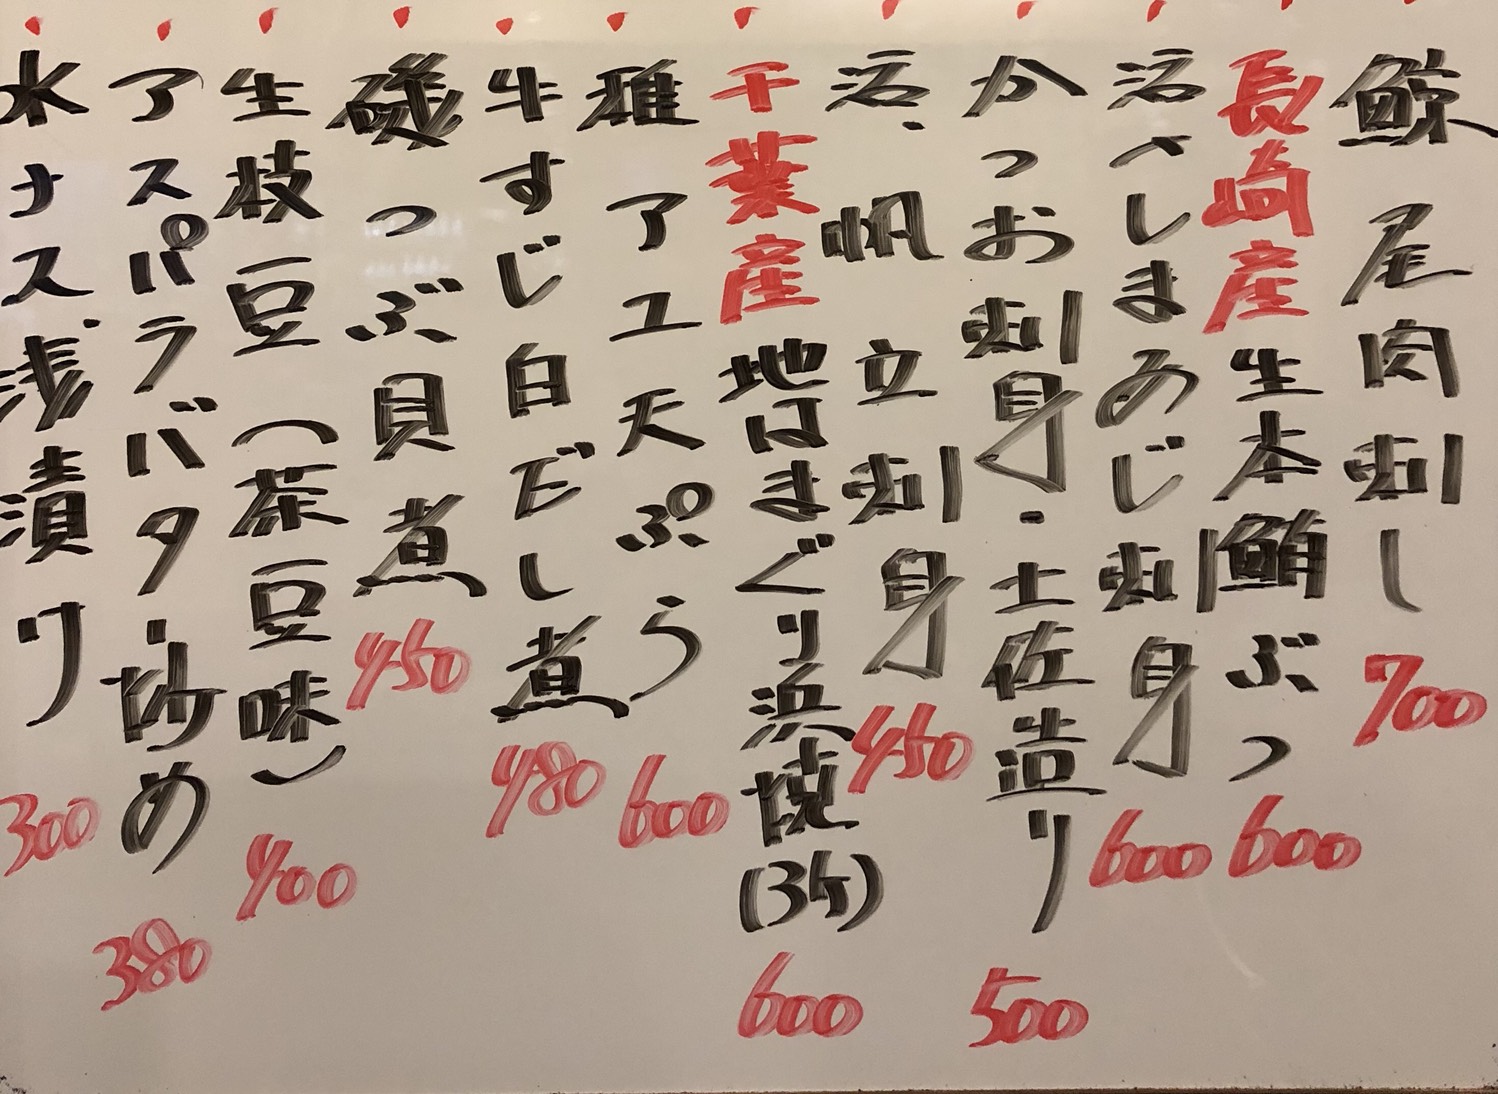 鯨尾肉刺し 700
長崎産生本鮪ぶつ 600
活〆しまあじ刺身 600
かつお刺身・土佐造り 500
活、帆立刺身 450
千葉産地はまぐり浜焼(3ケ) 600
稚アユ天ぷら 600
牛すじ白モし煮 480
磯つぶ貝煮 450
生枝豆(茶豆味) 400
アスパラバター炒め 380
水ナス浅漬り 300